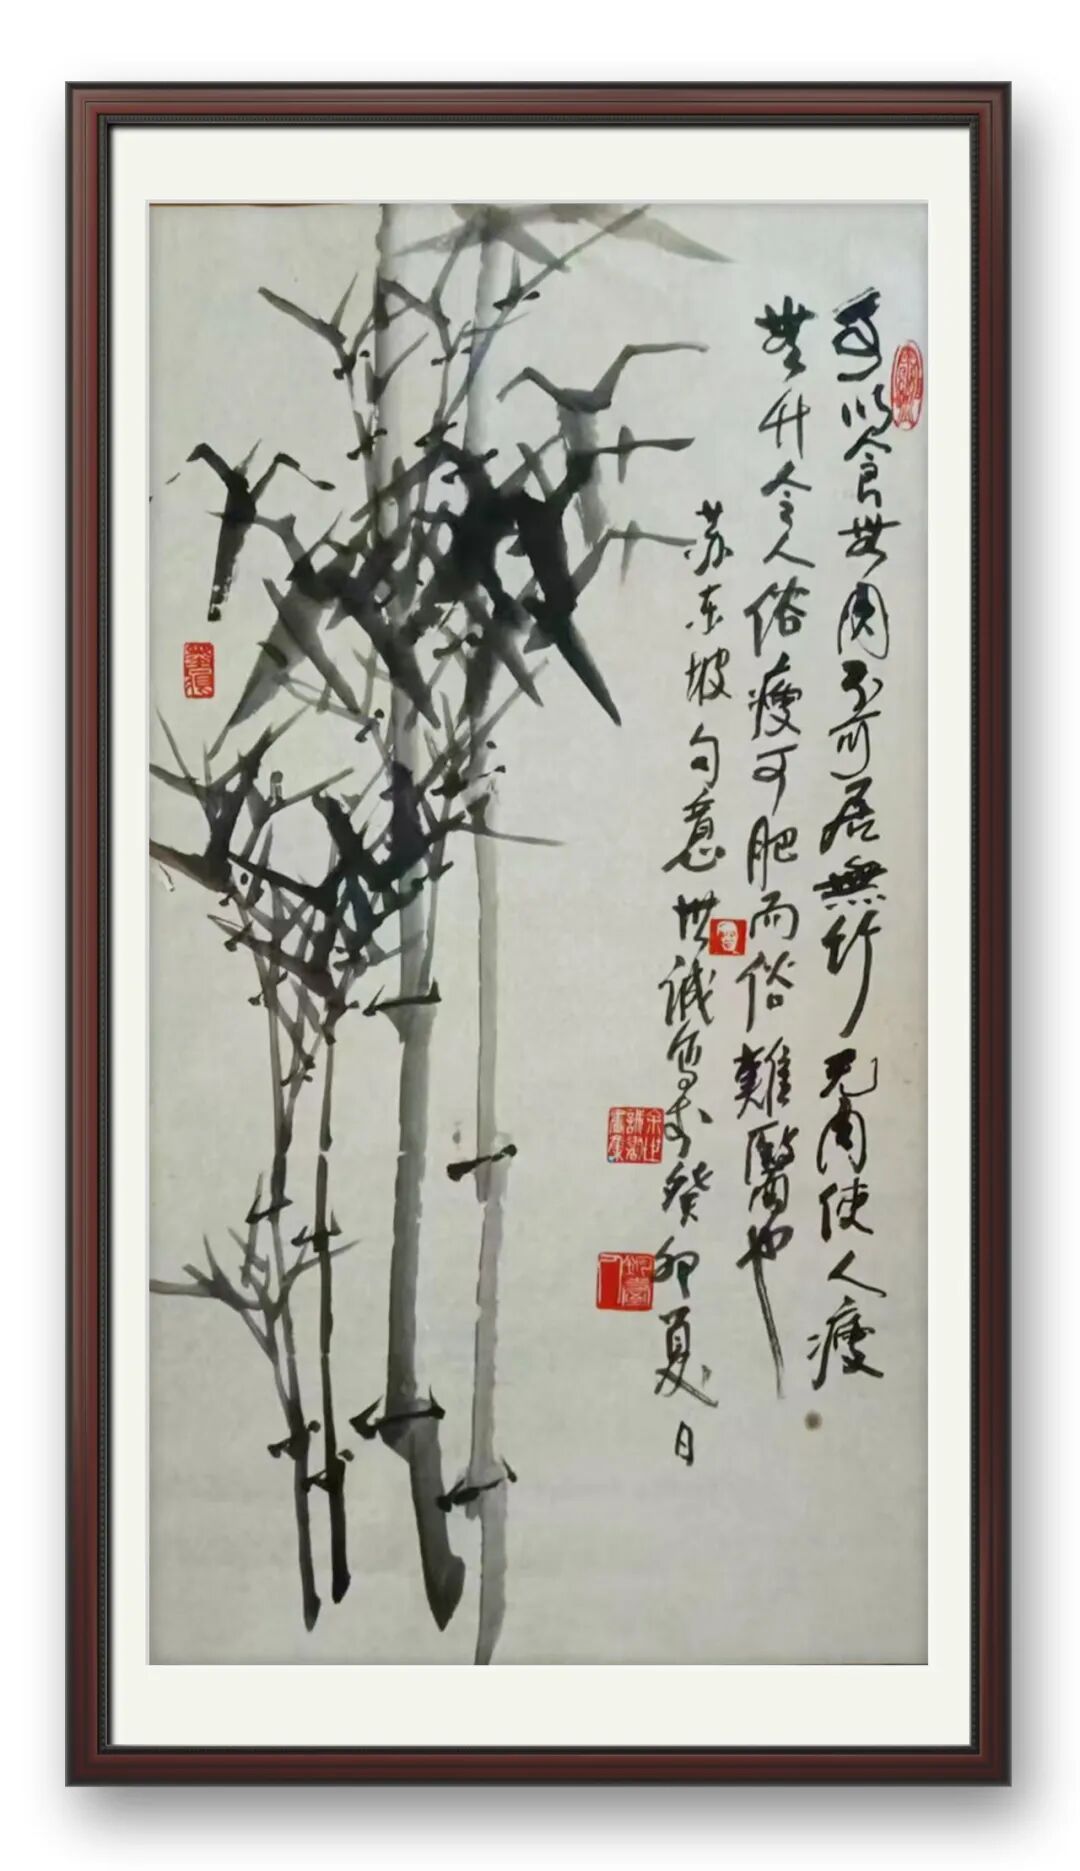 可以食無肉不可居無竹无肉使人瘦
無竹令人俗瘦可肥而俗難醫也
苏东坡句意世诚写於癸卯夏日